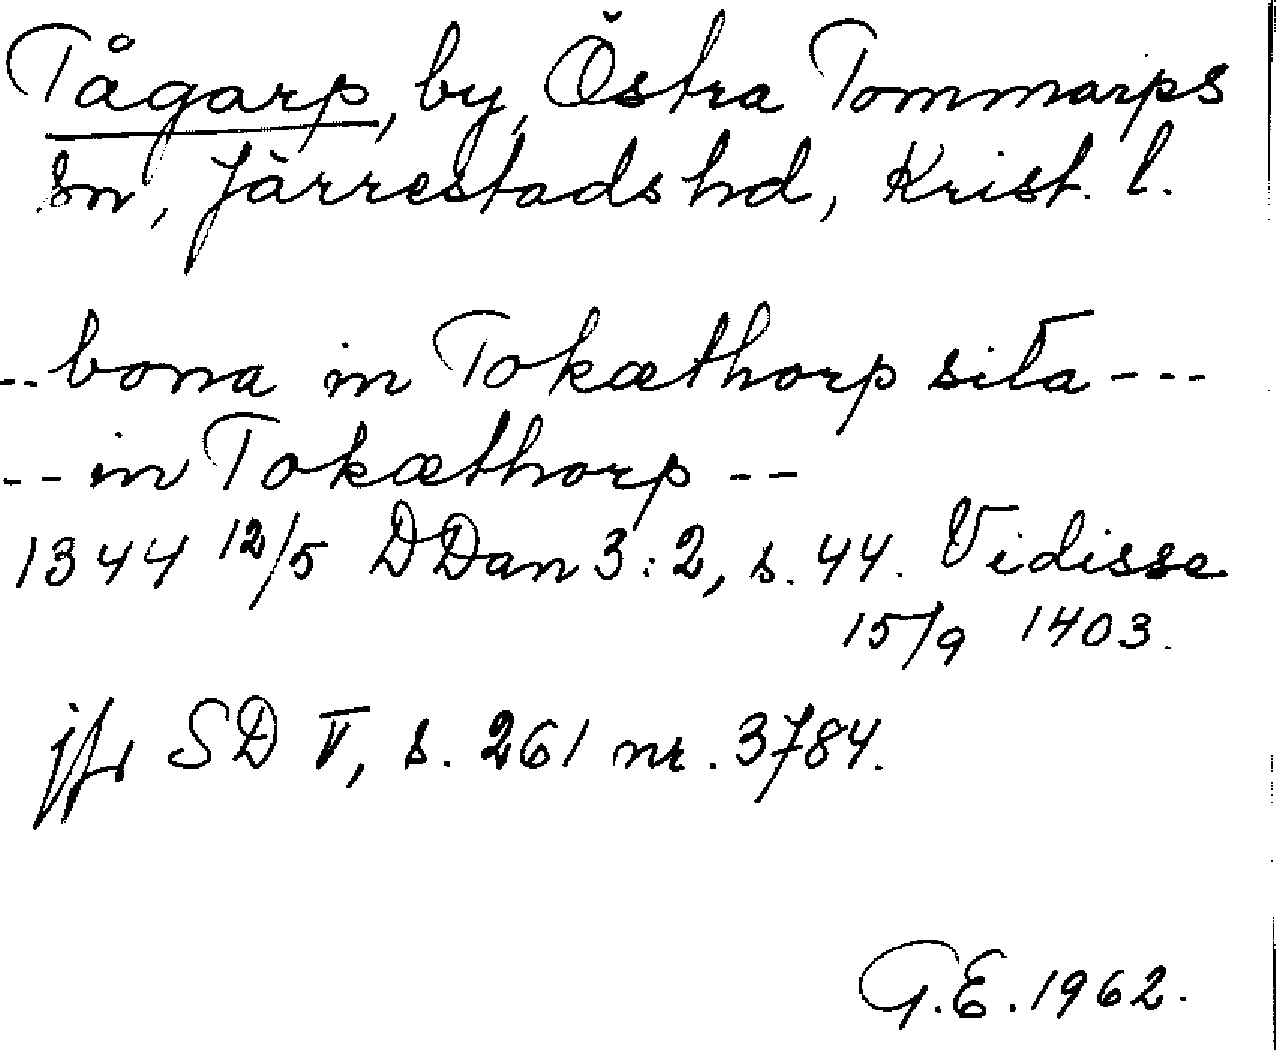 Tågarp, by, Östra Tommarps
sn, Järrestads hd, Krist. l.
-- bona in Tokæthorp sita ---
-- in Tokæthorp --
1344 12/5 DDan 3:2, s. 44. Vidisse
15/9 1403.
jfr SD V, s. 261 nr. 3784.
G.E. 1962.